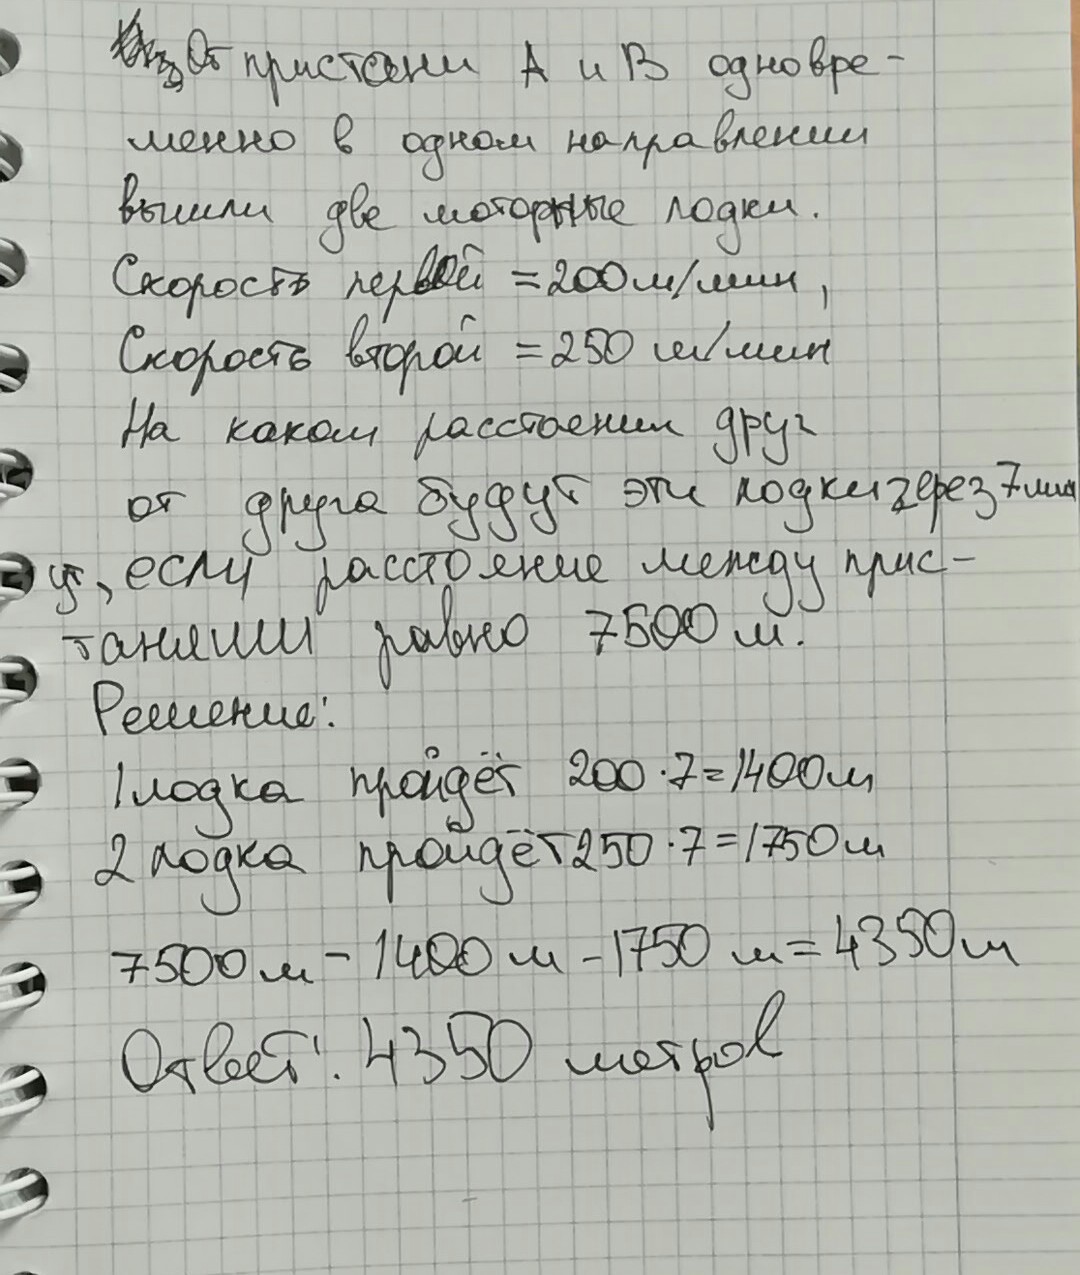 От пристани А и В одновре-
менно в одном направлении
вышли две моторные лодки.
Скорость первой = 200 м/мин,
Скорость второй = 250 м/мин
На каком расстоянии друг
от друга будут эти лодки через 7 мин
ут, если расстояние между прис-
танями равно 7500 м.
Решение:
1 лодка пройдёт 200 · 7 = 1400 м
2 лодка пройдёт 250 · 7 = 1750 м
7500 м - 1400 м - 1750 м = 4350 м
Ответ: 4350 метров